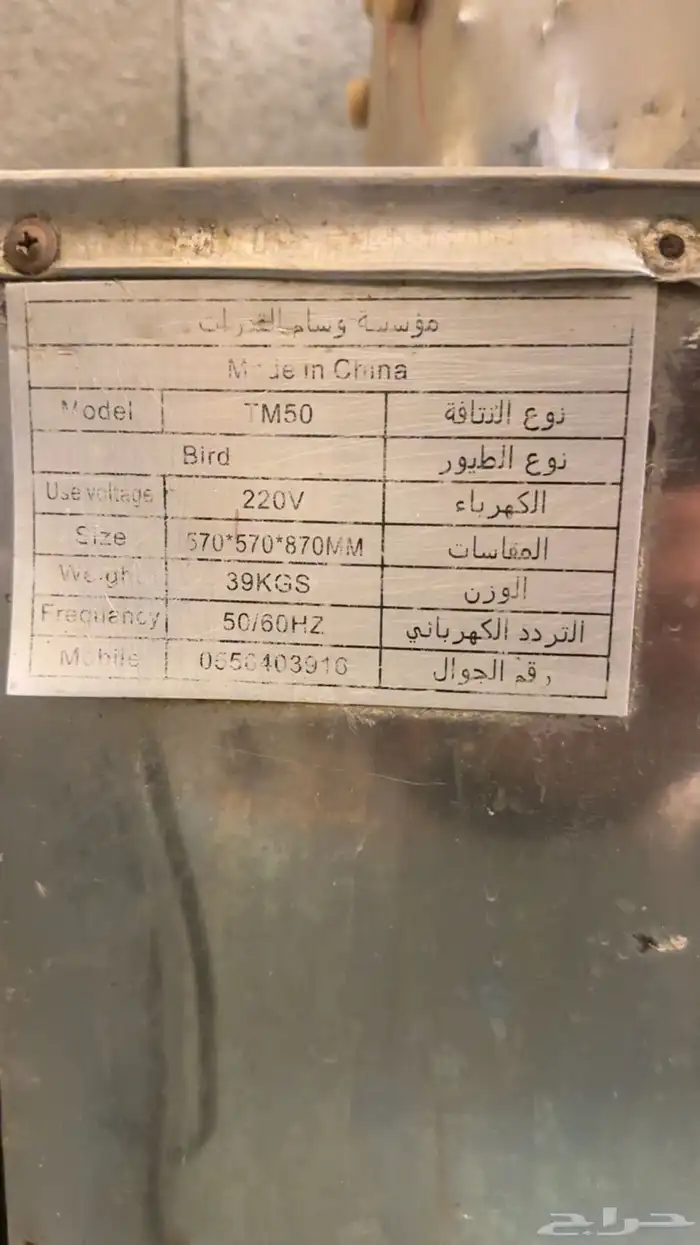 مؤسسة وسام القدرات
Made in China
Model TM50 نوع النتافة
Bird نوع الطيور
Use voltage 220V الكهرباء
Size 570*570*870MM المقاسات
Weight 39KGS الوزن
Frequancy 50/60HZ التردد الكهربائي
Mobile رقم الجوال
حراج